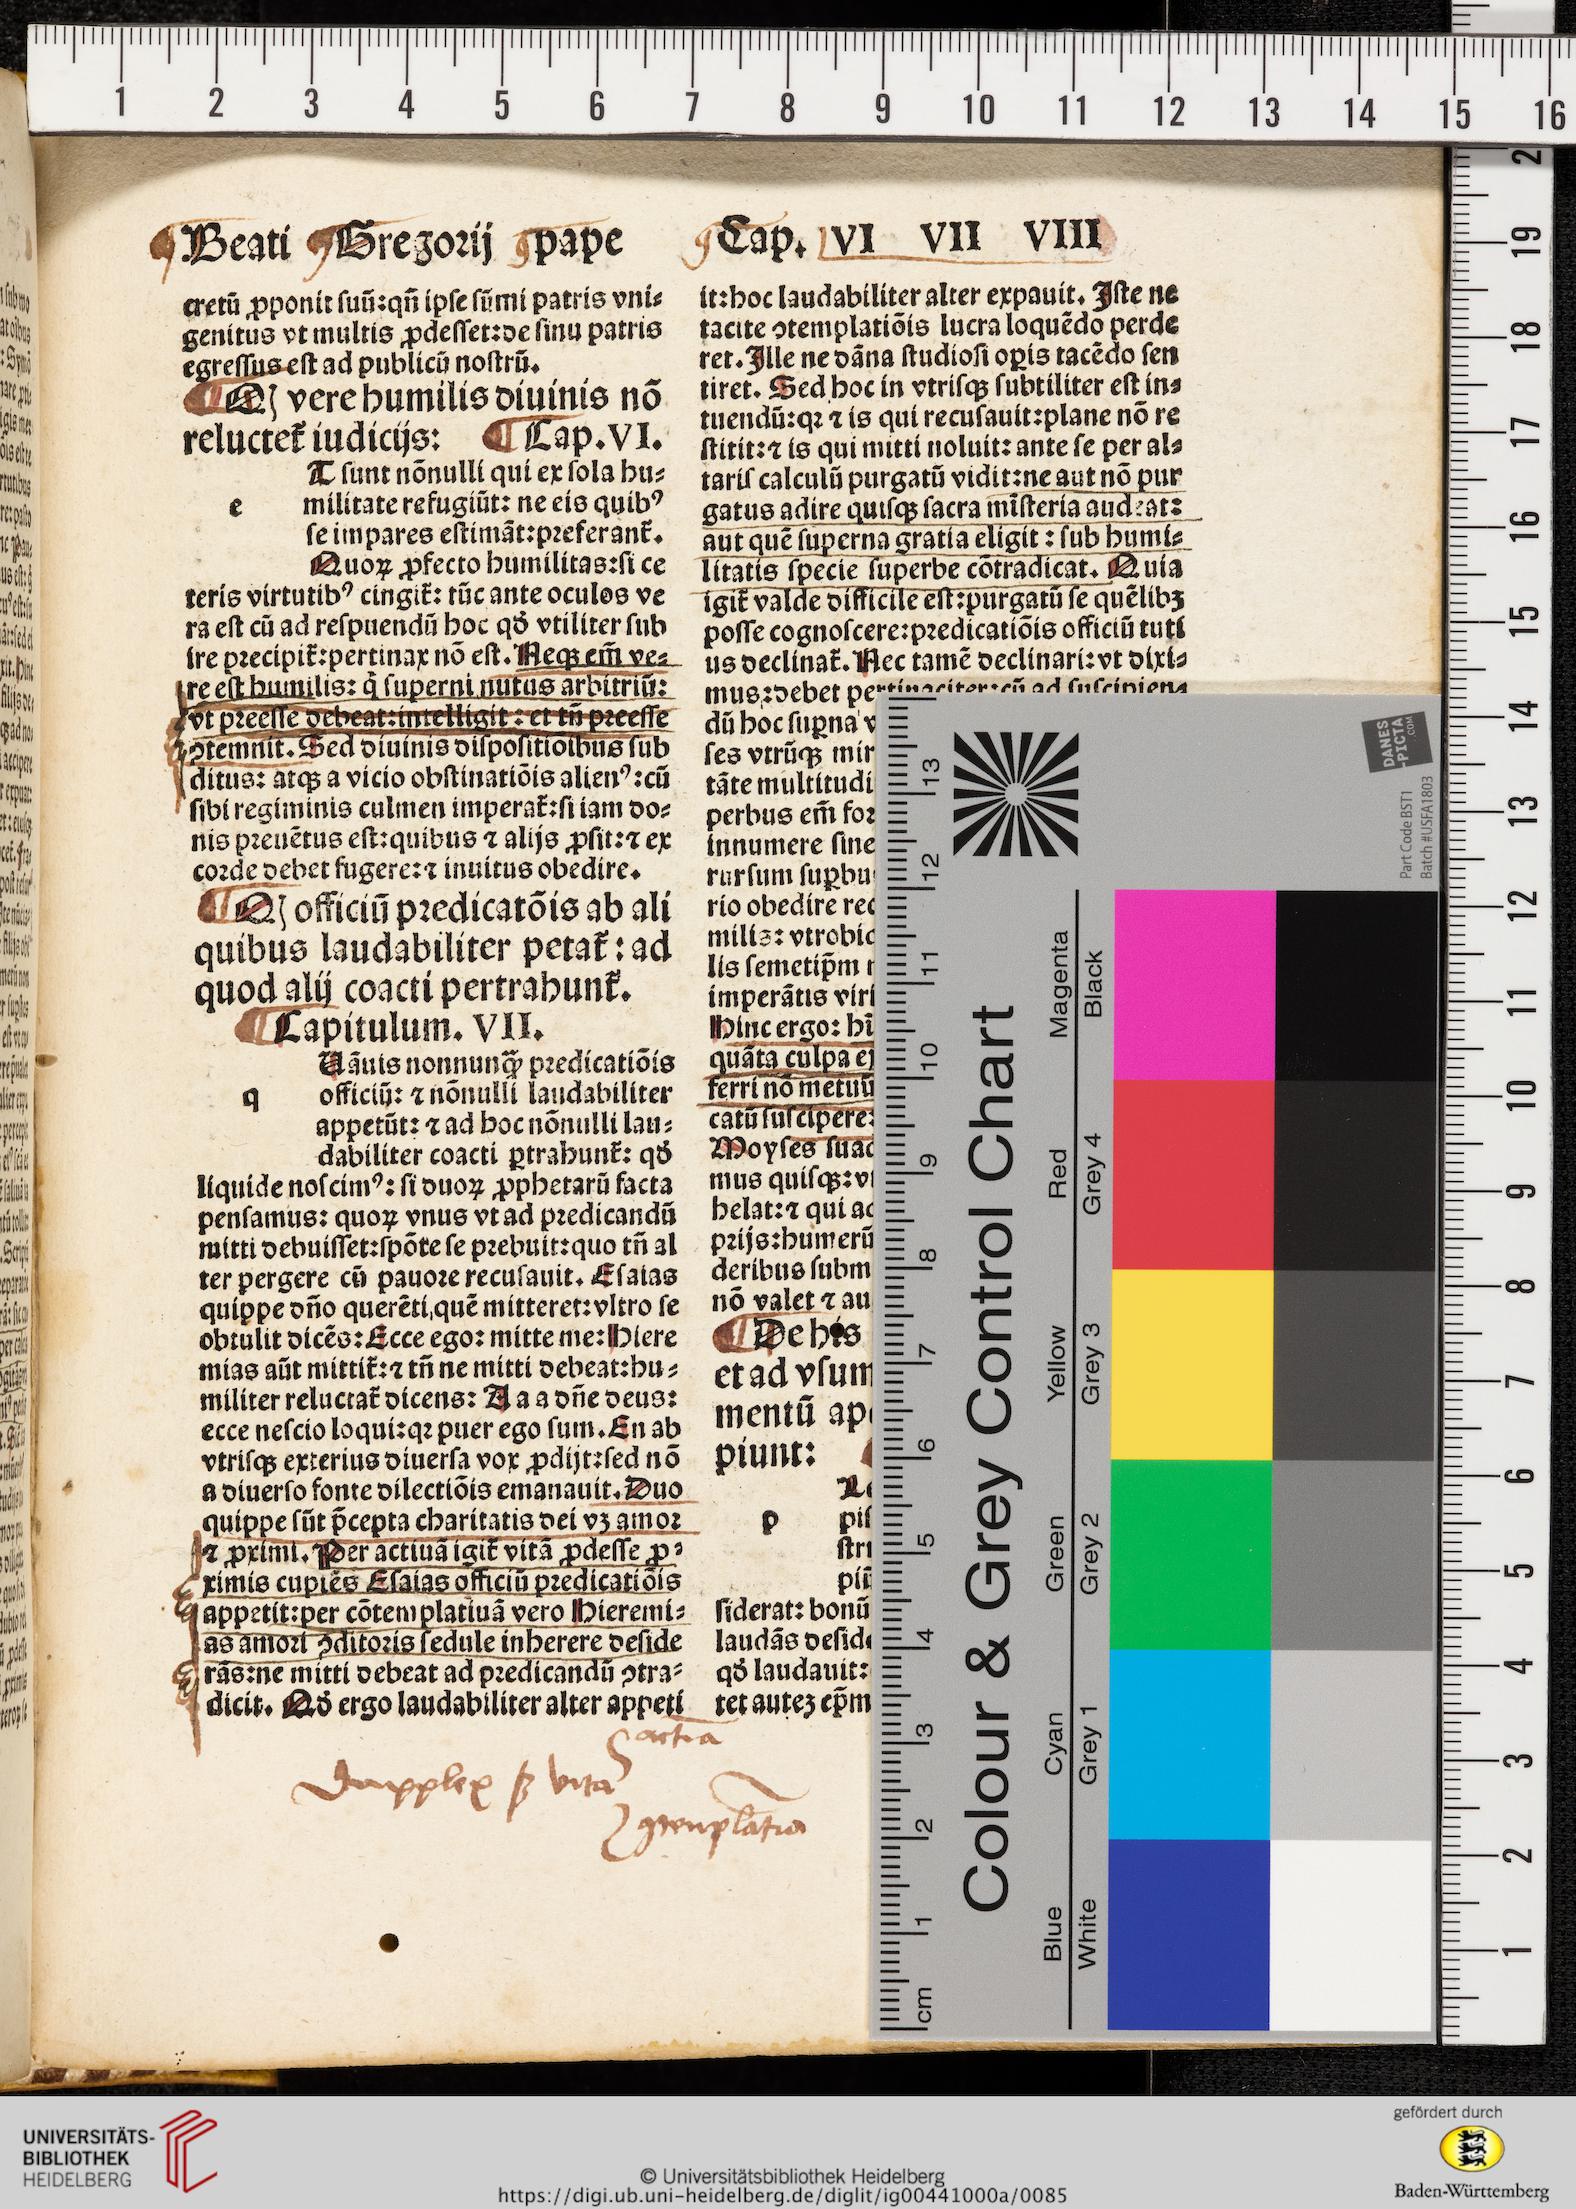 Beati Gregorij pape
cretū ꝓponit suū:qñ ipse sūmi patris vni⸗
genitus vt multis ꝓdesset:de sinu patris
egressus est ad publicū nostrū.
Qꝫ vere humilis diuinis nō
reluctet᷑ iudicijs: Cap.VI.
T sunt nōnulli qui ex sola hu⸗
e militate refugiūt: ne eis quibꝰ
se impares estimāt:preferant᷑.
Quoꝝ ꝓfecto humilitas:si ce
teris virtutibꝰ cingit᷑: tūc ante oculos ve
ra est cū ad respuendū hoc qd̓ vtiliter sub
ire precipit᷑:pertinax nō est. Neqꝫ em̄ ve⸗
re est humilis: q̇ superni nutus arbitriū:
vt preesse debeat:intelligit: et tñ preesse
ꝯtemnit. Sed diuinis dispositiōibus sub
ditus: atqꝫ a vicio obstinatiōis alienꝰ:cū
sibi regiminis culmen imperat᷑:si iam do⸗
nis preuētus est:quibus ⁊ alijs ꝓsit:⁊ ex
corde debet fugere:⁊ inuitus obedire.
Qꝫ officiū predicatōis ab ali
quibus laudabiliter petat᷑: ad
quod alij coacti pertrahunt᷑.
Capitulum. VII.
Uāuis nonnunqꝫ̄ predicatiōis
q officiū: ⁊ nōnulli laudabiliter
appetūt: ⁊ ad hoc nōnulli lau⸗
dabiliter coacti ꝑtrahunt᷑: qd̓
liquide noscimꝰ: si duoꝝ ꝓphetarū facta
pensamus: quoꝝ vnus vt ad predicandū
mitti debuisset:spōte se prebuit:quo tñ al
ter pergere cū pauore recusauit. Esaias
quippe dño querēti,quē mitteret:vltro se
obtulit dicēs: Ecce ego: mitte me: Hiere
mias aūt mittit᷑:⁊ tñ ne mitti debeat:hu⸗
militer reluctat᷑ dicens: A a a dñe deus:
ecce nescio loqui:qꝛ puer ego sum. En ab
vtrisqꝫ exterius diuersa vox ꝓdijt:sed nō
a diuerso fonte dilectiōis emanauit. Duo
quippe sūt p̄cepta charitatis dei vꝫ amor
⁊ ꝓximi. Per actiuā igit᷑ vitā ꝓdesse ꝓ⸗
ximis cupiēs Esaias officiū predicatiōis
appetit:per cōtemplatiuā vero Hieremi⸗
as amori ꝯditoris sedule inherere deside
rās:ne mitti debeat ad predicandū ꝯtra⸗
dicit. Qd̓ ergo laudabiliter alter appeti
actiua
Duppleх vita
ꝯtenplatiua
Cap. VI VII VIII
it:hoc laudabiliter alter expauit. Iste ne
tacite ꝯtemplatiōis lucra loquēdo perde
ret. Ille ne dāna studiosi oꝑis tacēdo sen
tiret. Sed hoc in vtrisqꝫ subtiliter est in⸗
tuendū:qꝛ ⁊ is qui recusauit:plane nō re
stitit:⁊ is qui mitti noluit: ante se per al⸗
taris calculū purgatū vidit:ne aut nō pur
gatus adire quisqꝫ sacra misteria audeat:
aut quē superna gratia eligit: sub humi⸗
litatis specie superbe cōtradicat. Quia
igit᷑ valde difficile est:purgatū se quēlibꝫ
posse cognoscere:predicatiōis officiū tuti
us declinat᷑. Nec tamē declinari:vt dixi⸗
mus:debet pertinaciter:cū ad suscipien⸗
dū hoc suꝑna v
ses vtrūqꝫ mir
tāte multitudi
perbus em̄ for
innumere sine
rursum suꝑbu
rio obedire rec
milis: vtrobic
lis semetip̄m
imperātis viri
Hinc ergo: hi
quāta culpa ex
ferri nō metuū
catū suscipere:
Moyses suad
mus quisqꝫ:v
helat:⁊ qui ad
prijs:humerū
deribus subm
nō valet ⁊ au
De his
et ad vsum
mentū ap
piunt:
p pis
str
piū
siderat: bonū
laudās desid
qd̓ laudauit:
tet autez ep̄m
1 2 3 4 5 6 7 8 9 10 11 12 13 14 15 16
2 19 18 17 16 15 14 13 12 11 10 9 8 7 6 5 4 3 2 1
13 12 11 10 9 8 7 6 5 4 3 2 1 cm
Colour & Grey Control Chart
Blue Cyan Green Yellow Red Magenta
White Grey 1 Grey 2 Grey 3 Grey 4 Black
DANES
-PICTA
.COM
Part Code BST1
Batch #USFA1803
UNIVERSITÄTS-
BIBLIOTHEK
HEIDELBERG
© Universitätsbibliothek Heidelberg
https://digi.ub.uni-heidelberg.de/diglit/ig00441000a/0085
gefördert durch
Baden-Württemberg